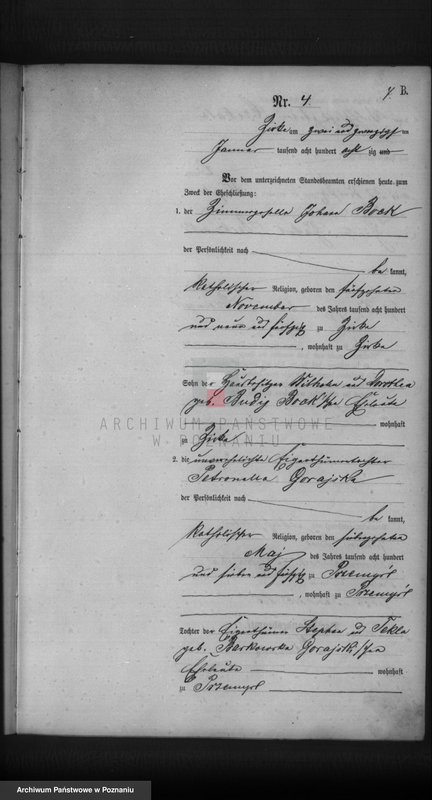 B.
Nr. 4.
Zirke am zwei und zwanzigsten
Januar tausend acht hundert acht zig und
Vor dem unterzeichneten Standesbeamten erschienen heute zum
Zweck der Eheschließung:
1. der Zimmergeselle Johann Bock
der Persönlichkeit nach
be kannt,
katholischer Religion, geboren den fünfzehnten
November des Jahres tausend acht hundert
und neun und fünfzig zu Zirke
, wohnhaft zu Zirke
Sohn der Hausbesitzer Wilhelm und Dorothea
geb. Budig Bock'schen Eheleute
wohnhaft
zu Zirke
2. die unverehelichte Eigenthümertochter
Petronella Gorajska
der Persönlichkeit nach
be kannt,
katholischer Religion, geboren den siebzehnten
Maj des Jahres tausend acht hundert
und sieben und fünfzig zu Przemysl
, wohnhaft zu Przemysl
Tochter der Eigenthümer Stephan und Tekla
geb. Barkowska Gorajski'schen
Eheleute wohnhaft
zu Przemysl
ARCHIWUM PAŃSTWOWE
W POZNANIU
Archiwum Państwowe w Poznaniu